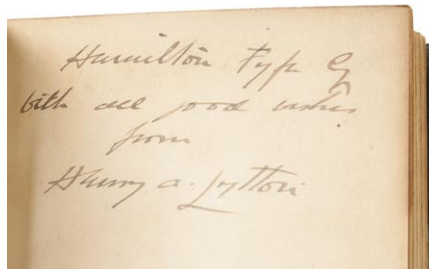 Hamilton Fyfe Esq
With all good wishes
from
Henry A. Lytton